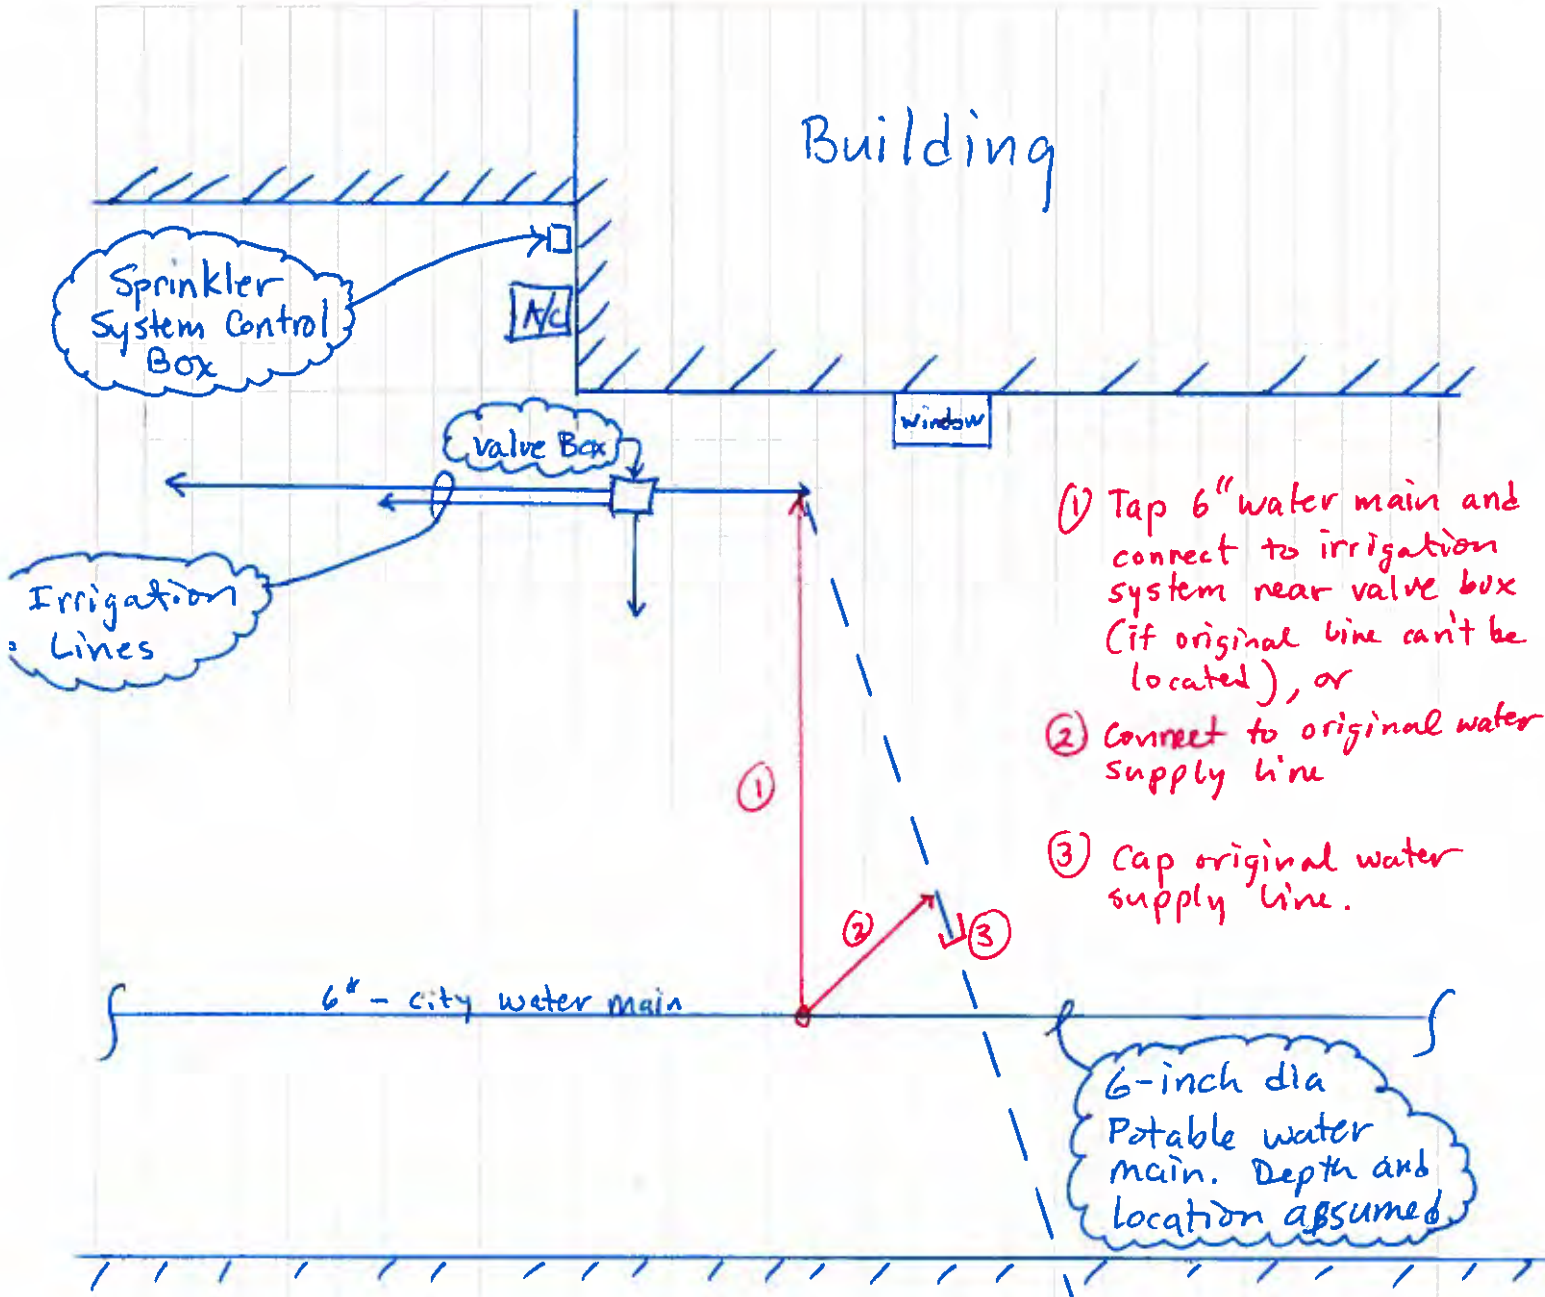 Building
Sprinkler
System Control
Box
A/C
Valve Box
window
Irrigation
Lines
① Tap 6" water main and
connect to irrigation
system near valve box
(if original line can't be
located), or
② Connect to original water
supply line
③ Cap original water
supply line.
①
②
③
6" - city water main
6-inch dia
Potable water
main. Depth and
location assumed